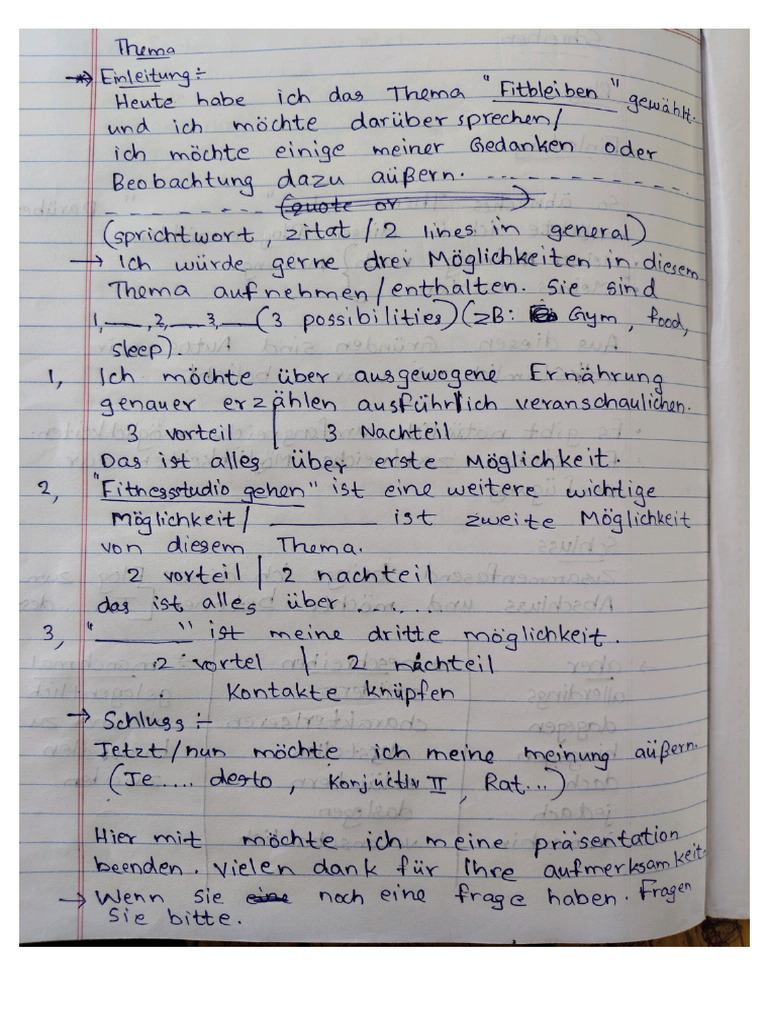 Thema
→ Einleitung:-
Heute habe ich das Thema "Fitbleiben" gewählt.
und ich möchte darüber sprechen/
ich möchte einige meiner Gedanken oder
Beobachtung dazu außern. - - - - - - - - - -
- - - - - - - - - - (quote or )
(sprichtwort, zitat / 2 lines in general)
→ Ich würde gerne drei Möglichkeiten in diesem
Thema aufnehmen/enthalten. Sie sind
1, ___, 2, ___ 3, ___ (3 possibilities) (zB: Gym, food,
sleep).
1, Ich möchte über ausgewogene Ernährung
genauer erzählen ausführlich veranschaulichen.
3 vorteil | 3 Nachteil
Das ist alles über erste Möglichkeit.
2, "Fitnessstudio gehen" ist eine weitere wichtige
Möglichkeit/ ________ ist zweite Möglichkeit
von diesem Thema.
2 vorteil | 2 nachteil
das ist alles über . . . . . .
3, "________" ist meine dritte möglichkeit.
2 vortel | 2 nachteil
Kontakte knüpfen
→ Schluss:-
Jetzt/nun möchte ich meine meinung außern.
(Je .... desto, Konjuctiv II, Rat...)
Hier mit möchte ich meine präsentation
beenden. vielen dank für Ihre aufmerksamkeit.
→ Wenn sie noch eine frage haben. Fragen
Sie bitte.